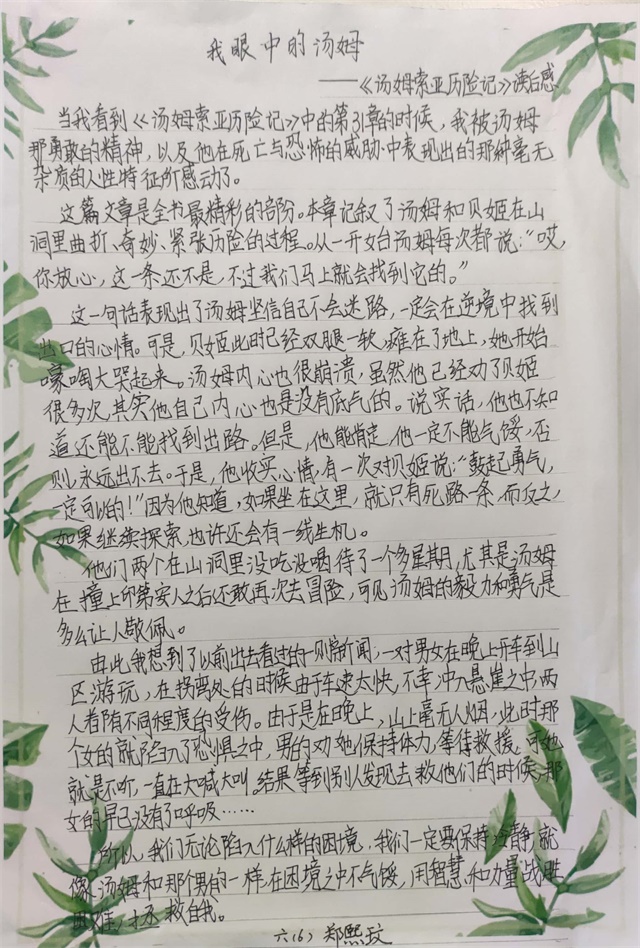 我眼中的汤姆
——《汤姆索亚历险记》读后感
当我看到《汤姆索亚历险记》中的第31章的时候，我被汤姆
那勇敢的精神，以及他在死亡与恐怖的威胁中表现出的那种毫无
杂质的人性特征所感动了。
这篇文章是全书最精彩的部份。本章记叙了汤姆和贝姬在山
洞里曲折、奇妙、紧张历险的过程。从一开始汤姆每次都说：“哎，
你放心，这一条还不是，不过我们马上就会找到它的。”
这一句话表现出了汤姆坚信自己不会迷路，一定会在逆境中找到
出口的心情。可是，贝姬此时已经双腿一软，瘫在了地上，她开始
嚎啕大哭起来。汤姆内心也很崩溃，虽然他已经劝了贝姬
很多次，其实他自己内心也是没有底气的。说实话，他也不知
道还能不能找到出路。但是，他能肯定，他一定不能气馁，否
则，永远出不去。于是，他收买心情，有一次对贝姬说：“鼓起勇气，
一定可以的！”因为他知道，如果坐在这里，就只有死路一条，而反之，
如果继续探索，也许还会有一线生机。
他们两个在山洞里没吃没喝待了一个多星期，尤其是汤姆
在撞上印第安人之后还敢再次去冒险，可见汤姆的毅力和勇气是
多么让人敬佩。
由此我想到了以前出去看过的一则新闻，一对男女在晚上开车到山
区游玩，在拐弯处的时候由于车速太快，不幸，冲入悬崖之中，两
人都有不同程度的受伤。由于是在晚上，山上毫无人烟，此时那
个女的就陷入了恐惧之中，男的劝她保持体力，等待救援，可她
就是不听，一直在大喊大叫，结果等到别人发现去救他们的时候，那
女的早已没有了呼吸……
所以，我们无论陷入什么样的困境，我们一定要保持冷静，就
像汤姆和那个男的一样，在困境之中不气馁，用智慧和力量战胜
困难，拯救自我。
六(6) 郑熙玟